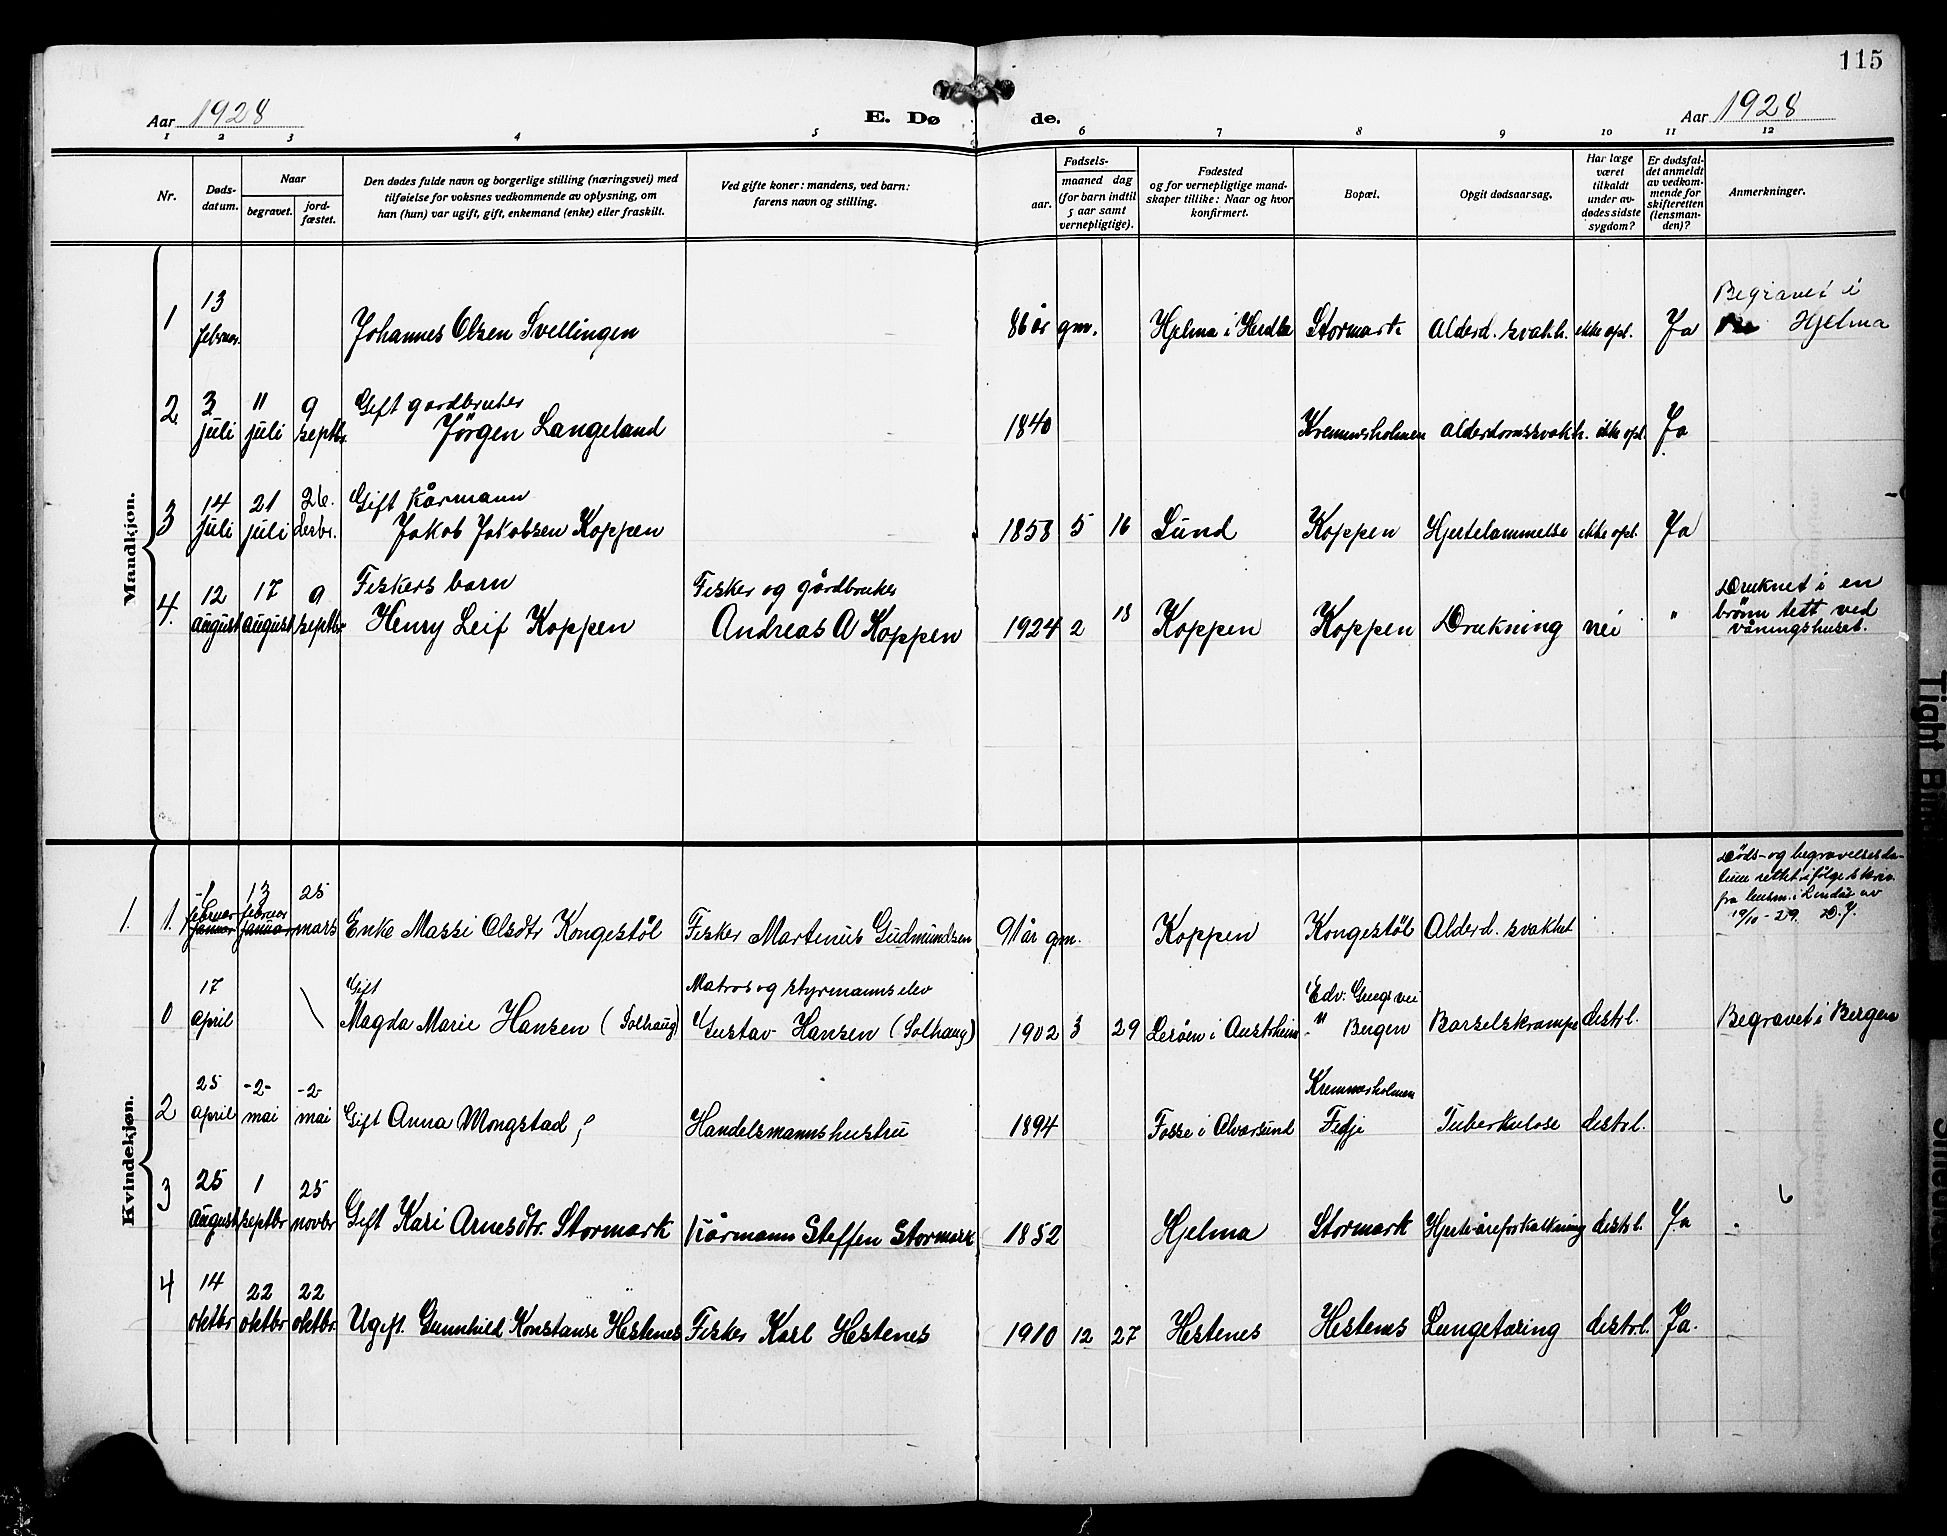 115
Aar 1928
E. Dø
de.
Aar 1928
1 2 3 4 5 6 7 8 9 10 11 12
Nr.
Døds-
datum.
Naar
begravet.
jord-
fæstet.
Den dødes fulde navn og borgerlige stilling (næringsvei) med
tilføielse for voksnes vedkommende av oplysning, om
han (hun) var ugift, gift, enkemand (enke) eller fraskilt.
Ved gifte koner: mandens, ved barn:
farens navn og stilling.
Fødsels-
aar.
maaned dag
(for barn indtil
5 aar samt
vernepligtige).
Fødested
og for vernepligtige mand-
skaper tillike: Naar og hvor
konfirmert.
Bopæl.
Opgit dødsaarsag.
Har læge
været
tilkaldt
under av-
dødes sidste
sygdom?
Er dødsfal-
det anmeldt
av vedkom-
mende for
skifteretten
(lensman-
den)?
Anmerkninger.
Mandkjøn.
1
13
februar.
Johannes Olsen Svellingen
86 år gm.
Hjelma i Herdla
Stormark
Alderd. svak.h.
ikke opl.
Ja
Begravet i
Hjelma
2
3
juli
11
juli
9
septbr.
Gift gardbruker
Jörgen Langeland
1840
Kremmerholmen
alderdomssvakh.
ikke opl.
Ja
3
14
juli
21
juli
26.
desbr.
Gift kårmann
Jakob Jakobsen Koppen
1858 5 16
Lund
Koppen
Hjertelammelse
ikke opl.
Ja
4.
12
august
17
august
9
septbr
Fiskers barn
Henry Leif Koppen
Fisker og gårdbruker
Andreas A Koppen
1924 2 18
Koppen
Koppen
Drukning
nei
"
Druknet i en
brönn tett ved
våningshuset.
Kvindekjøn.
1. 1.
1
februar
januar
13
februar
januar
25
mars
Enke Massi Olsdtr Kongestöl
Fisker Martinus Gudmundsen
91 år gm.
Koppen
Kongestöl
Alderd. svakhet
Döds- og begravelsesda-
tum rettet ifölge skriv
fra lensm. i Lindås av
19/10-29. D.J.
0
17
april
Gift
Magda Marie Hansen (Solhaug)
Matros og styrmannselev
Gustav Hansen (Solhaug)
1902 3 29
Leröen i Austrheim
Edv. Griegs vei
Bergen
Barselskrampe
distr.l.
Begravet i Bergen
2
25
april
-2-
mai
-2-
mai
Gift Anna Mongstad
Handelsmannshustru
1894
Fosse i Alversund
Kremmerholmen
Fedje
Tuberkulose
distr.l.
3
25
august
1
septbr
25
novbr
Gift Kari Arnesdtr. Stormark
Kårmann Steffen Stormark
1852
Hjelma
Stormark
Hjerte-åreforkalkning
distr.l.
Ja
6
4
14
oktbr
22
oktbr
22
oktbr.
Ugift. Gunnhild Konstanse Hestenes
Fisker Karl Hestenes
1910 12 27
Hestenes
Hestenes
Lungetæring
distr.l.
Ja.
Tight Bin